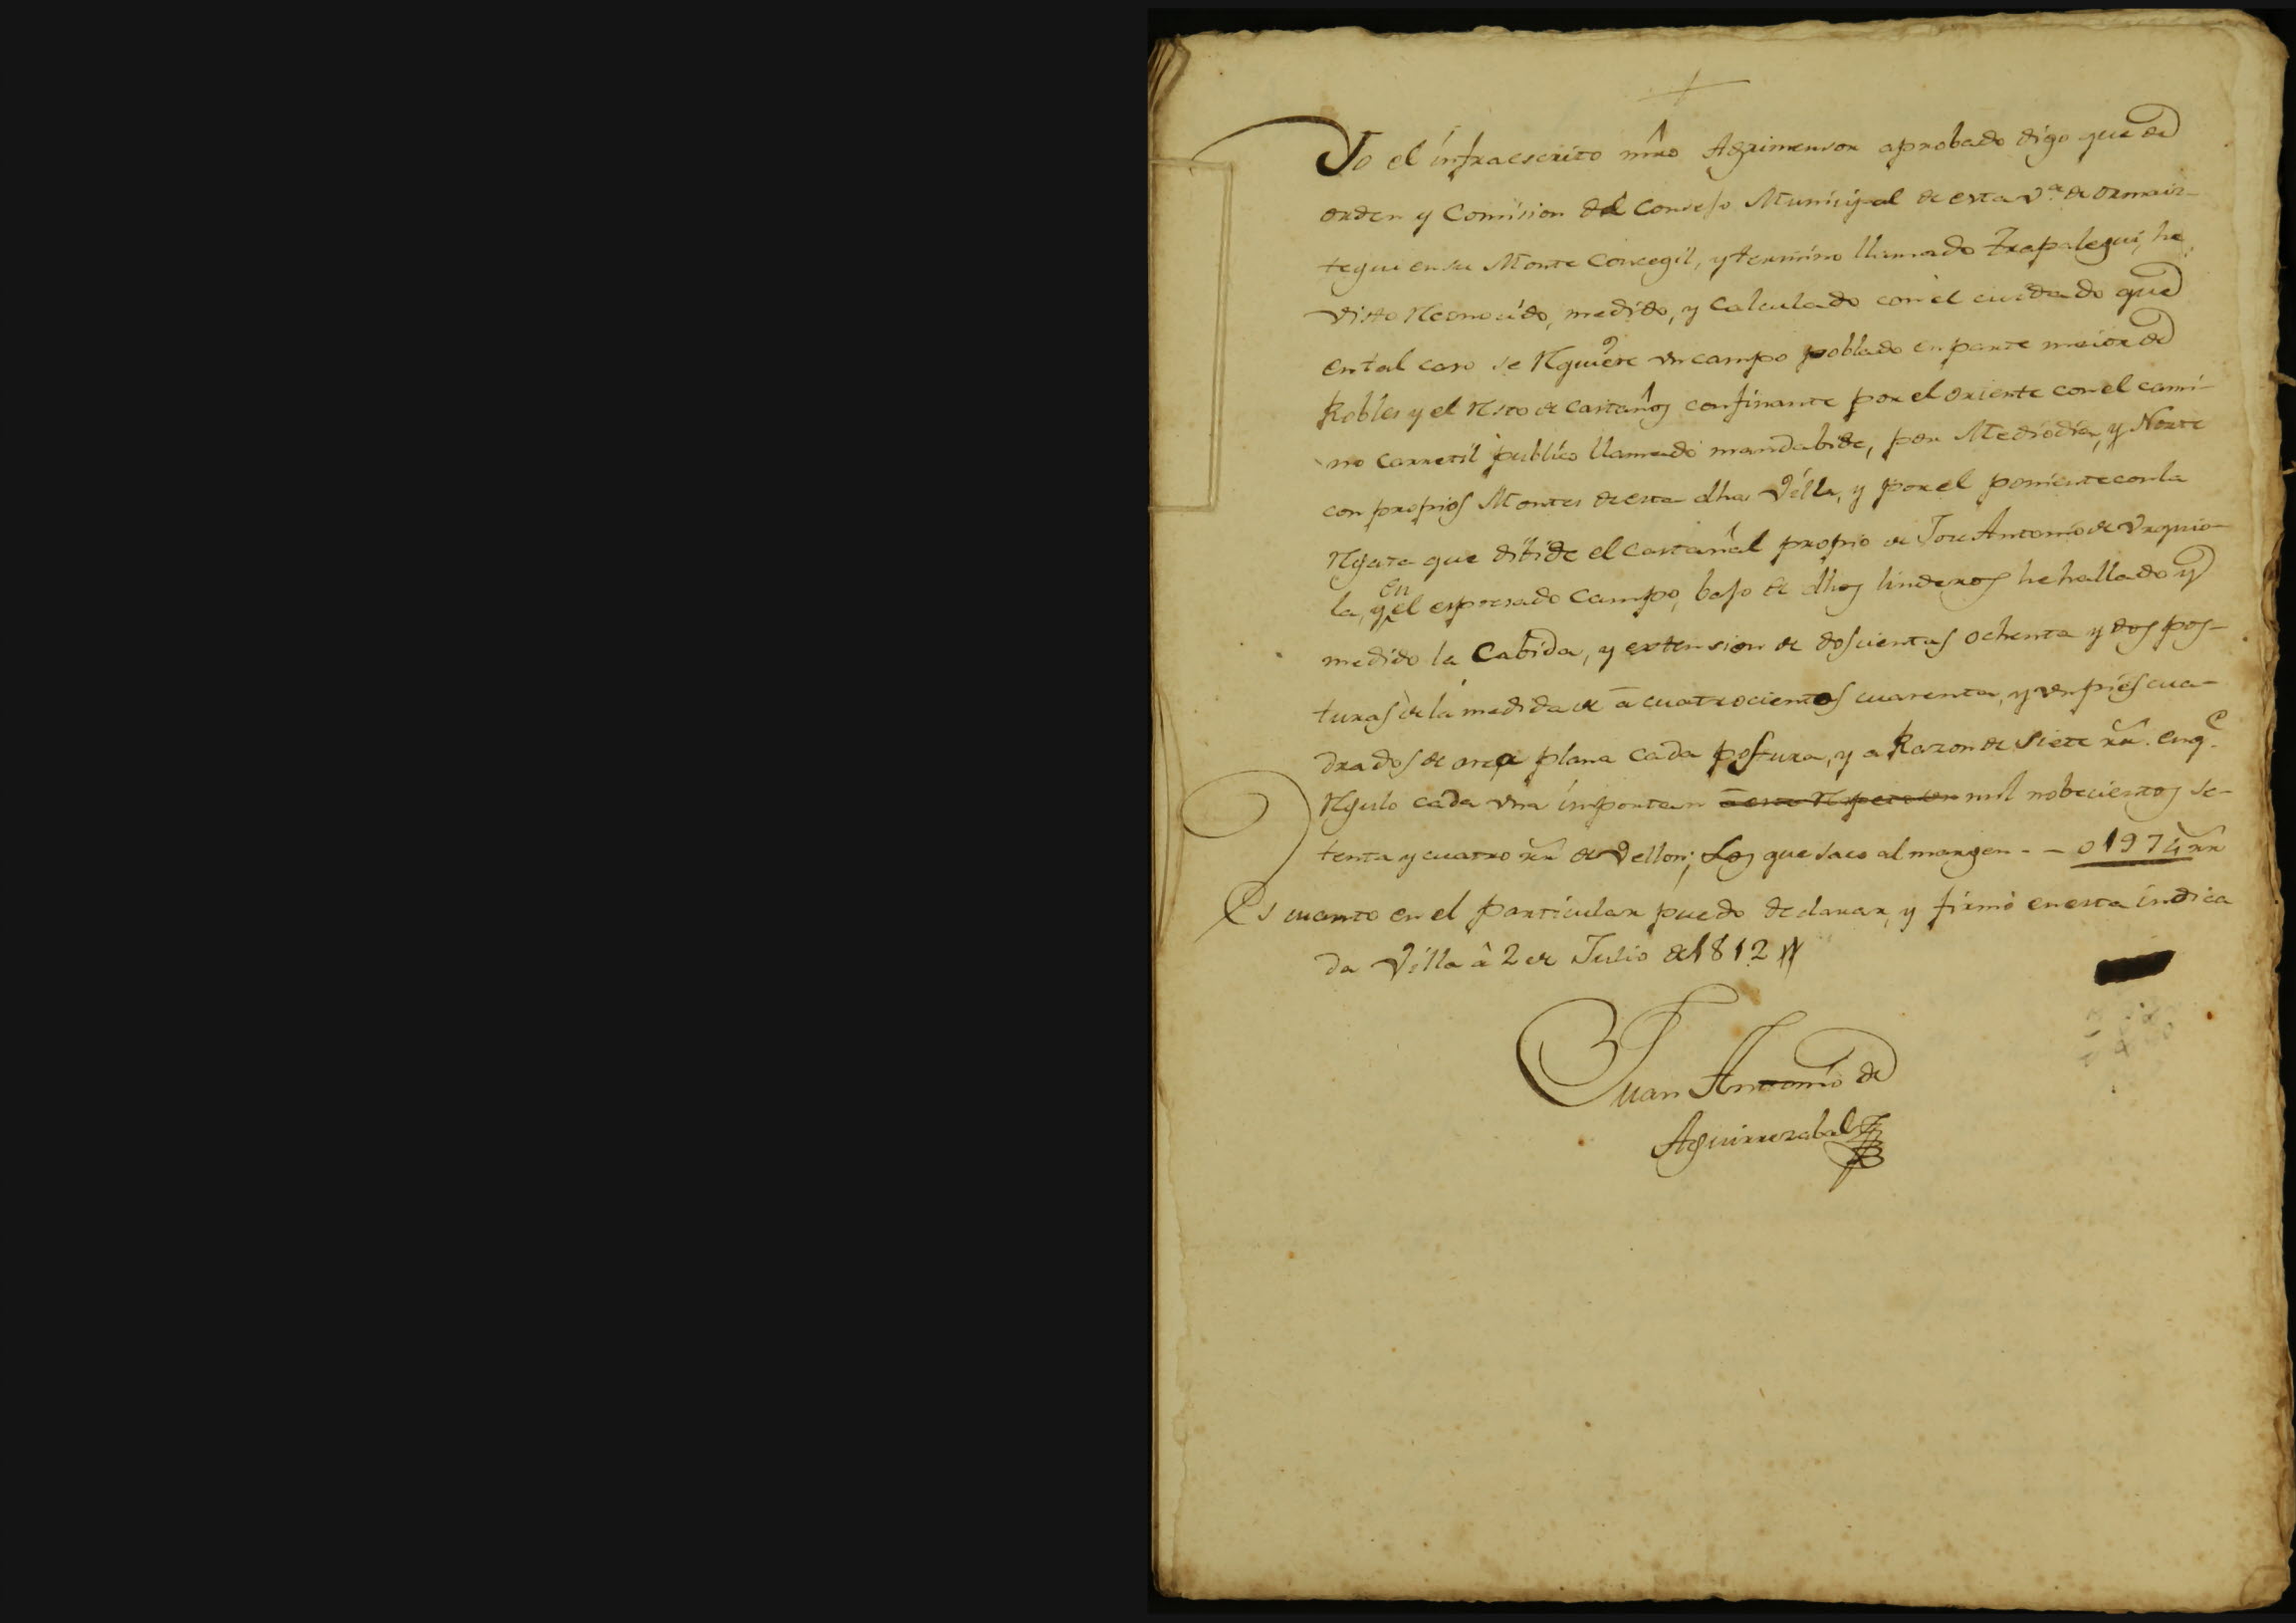 Yo el infraescrito mro Agrimensor aprobado digo que de
orden y Comision del Consejo Municipal de esta Vª de Ormaiz-
tegui en su Monte Concegil, y termino llamado Trapalegui, he
visto Reconocido, medido, y Calculado con el cuidado que
en tal caso se Rquiere un campo poblado en parte maior de
Robles y el Rsto de castaños confinante por el oriente con el cami-
no carretil publico llamado mandabide, por Mediodia, y Norte
con propios Montes de esta dha Villa, y por el poniente con la
Rgata que dibide el castañal proprio de Jose Antonio de Urquio-
la, y en el espresado Campo, bajo de dhos linderos he hallado y
medido la Cabida, y extension de doscientas ochenta y dos pos-
turas de la medida de a cuatrocientos cuarenta, y un pies cua-
drados de area plana cada postura, y a Razon de siete rr. en q.e
Rgulo cada una importan mil nobecientos se-
tenta y cuatro rr de Vellon; Los que saco al margen - - 0 1974 rr
Es cuanto en el particular puedo declarar, y firmo en esta indica
da Villa â 2 de Julio de 1812
Juan Antonio de
Aguirrezabal